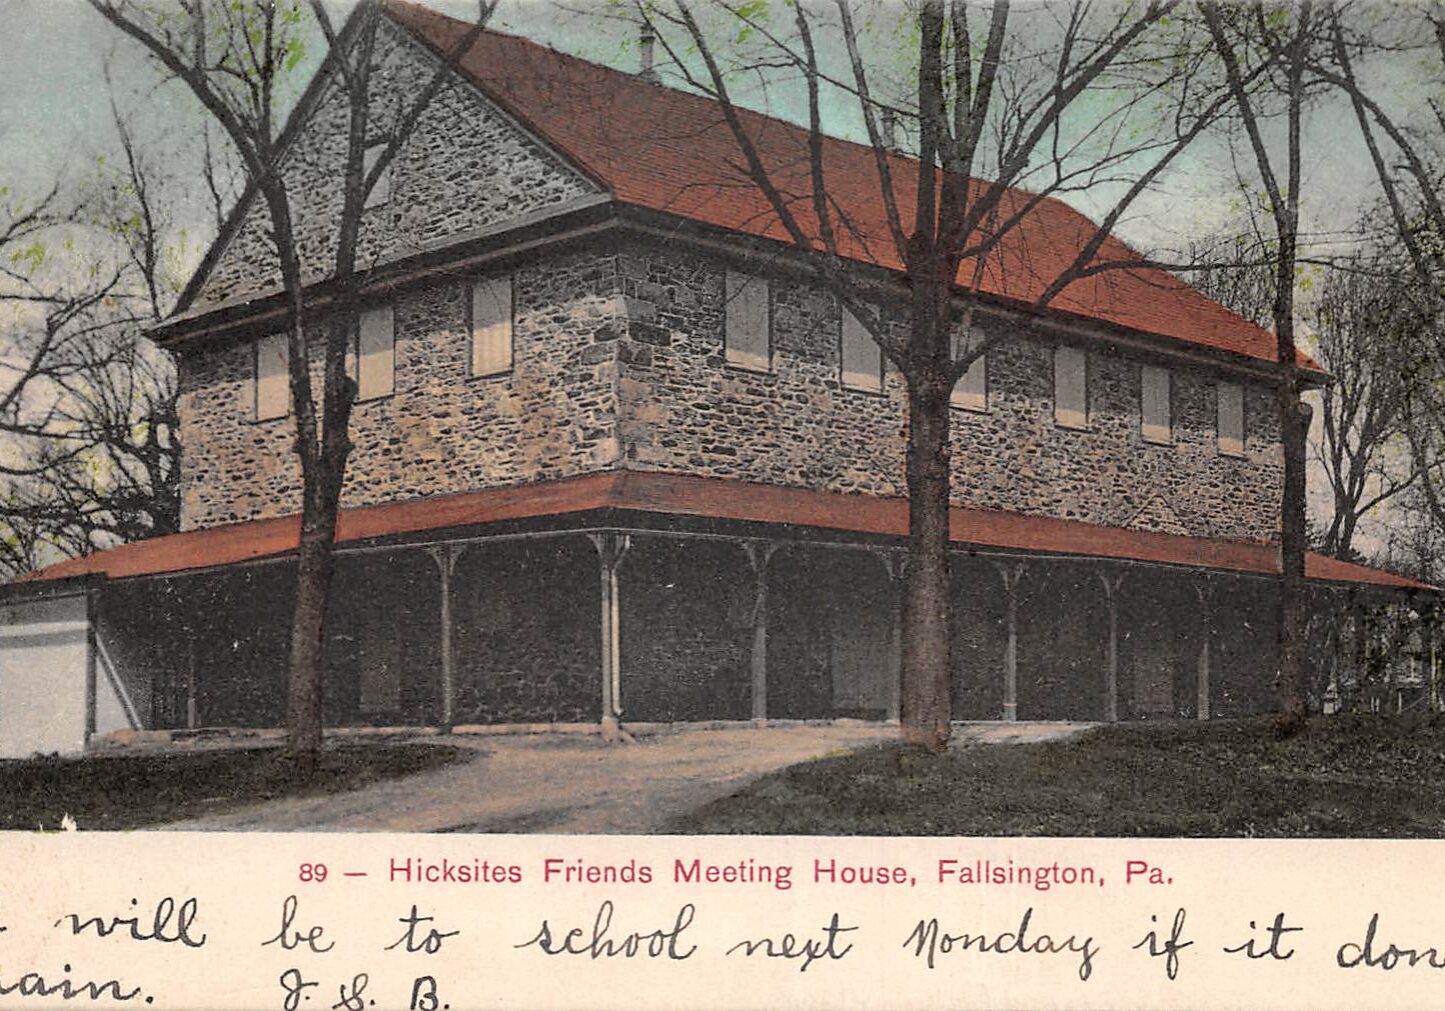 89 — Hicksites Friends Meeting House, Fallsington, Pa.
will be to school next Monday if it don
ain. J. S. B.